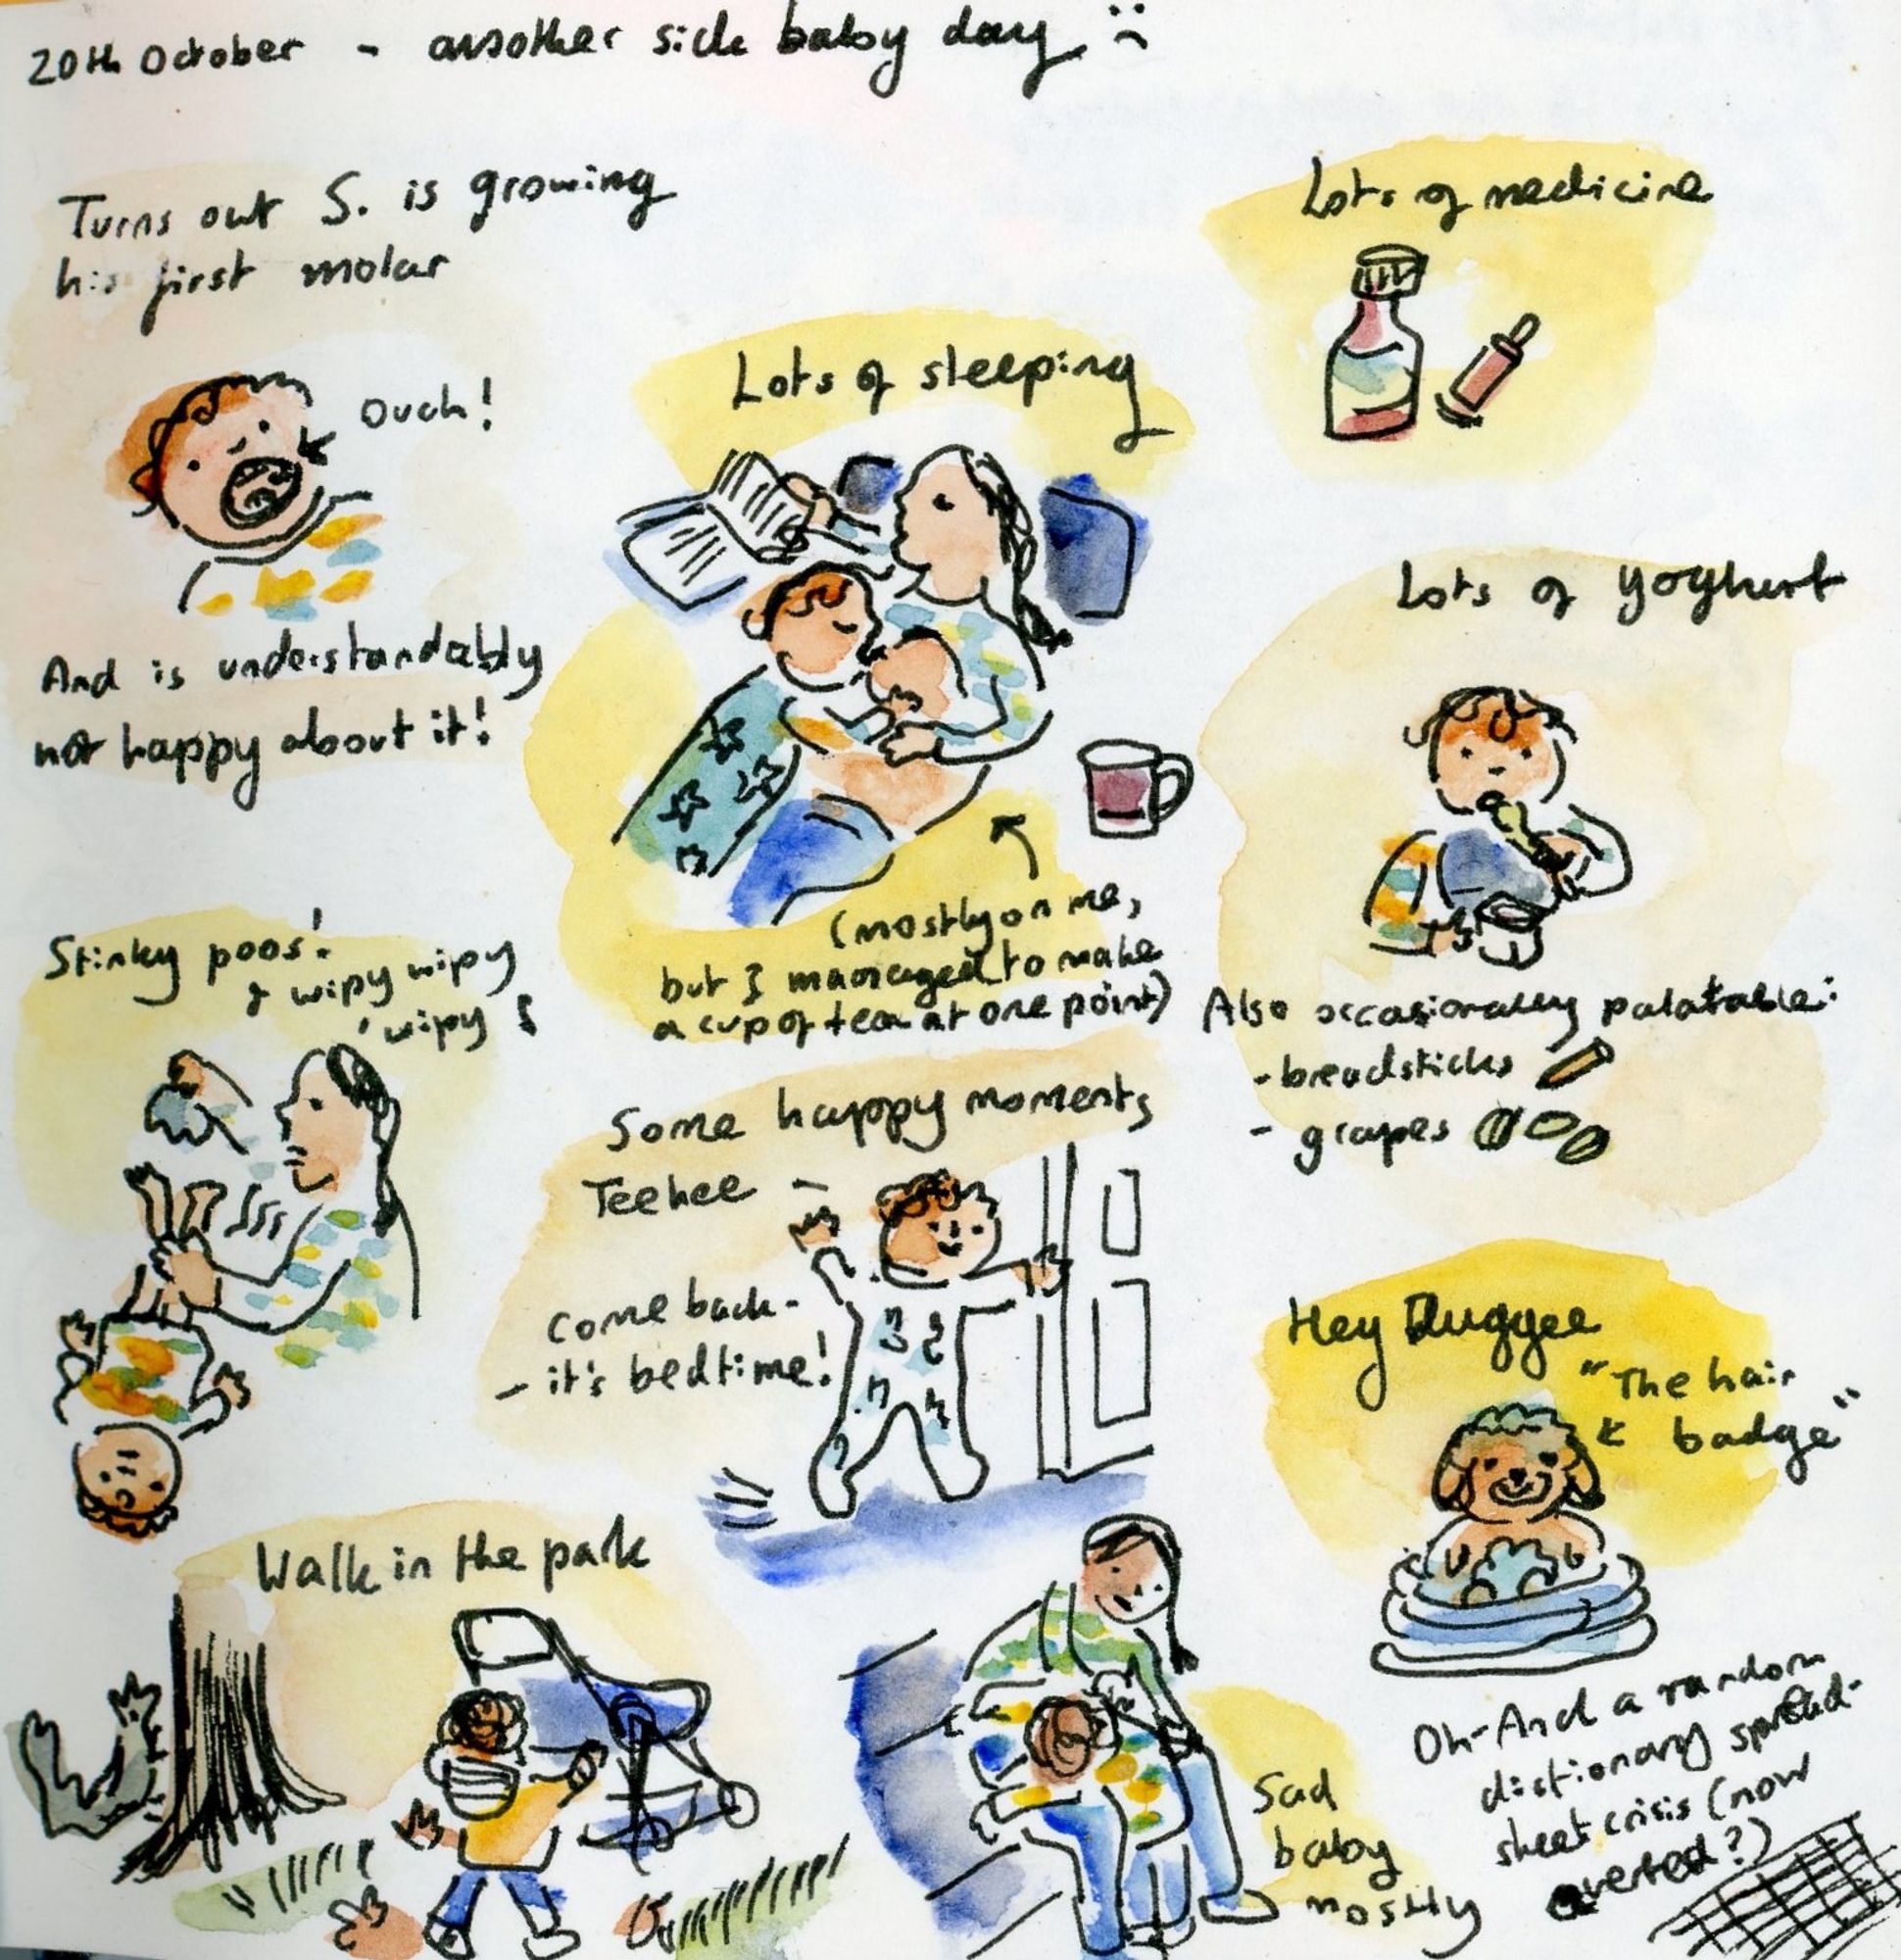 20th October - another sick baby day :(
Turns out S. is growing
his first molar
Ouch!
And is understandably
not happy about it!
Lots of sleeping
(mostly on me,
but I managed to make
a cup of tea at one point)
Lots of medicine
Lots of yoghurt
Also occasionally palatable:
- breadsticks
- grapes
Stinky poos!
& wipy wipy
wipy!
Some happy moments
Teehee -
come back -
- it's bedtime!
Hey Duggee
"The hair
badge"
Walk in the park
Sad
baby
mostly
Oh - And a random
dictionary spread-
sheet crisis (now
averted?)